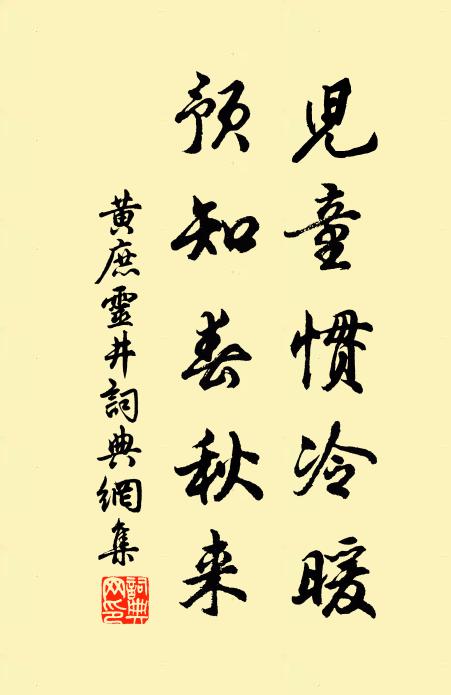 児童慣冷暖
預知春秋来
黃庶靈井詞典網集
詞典网印